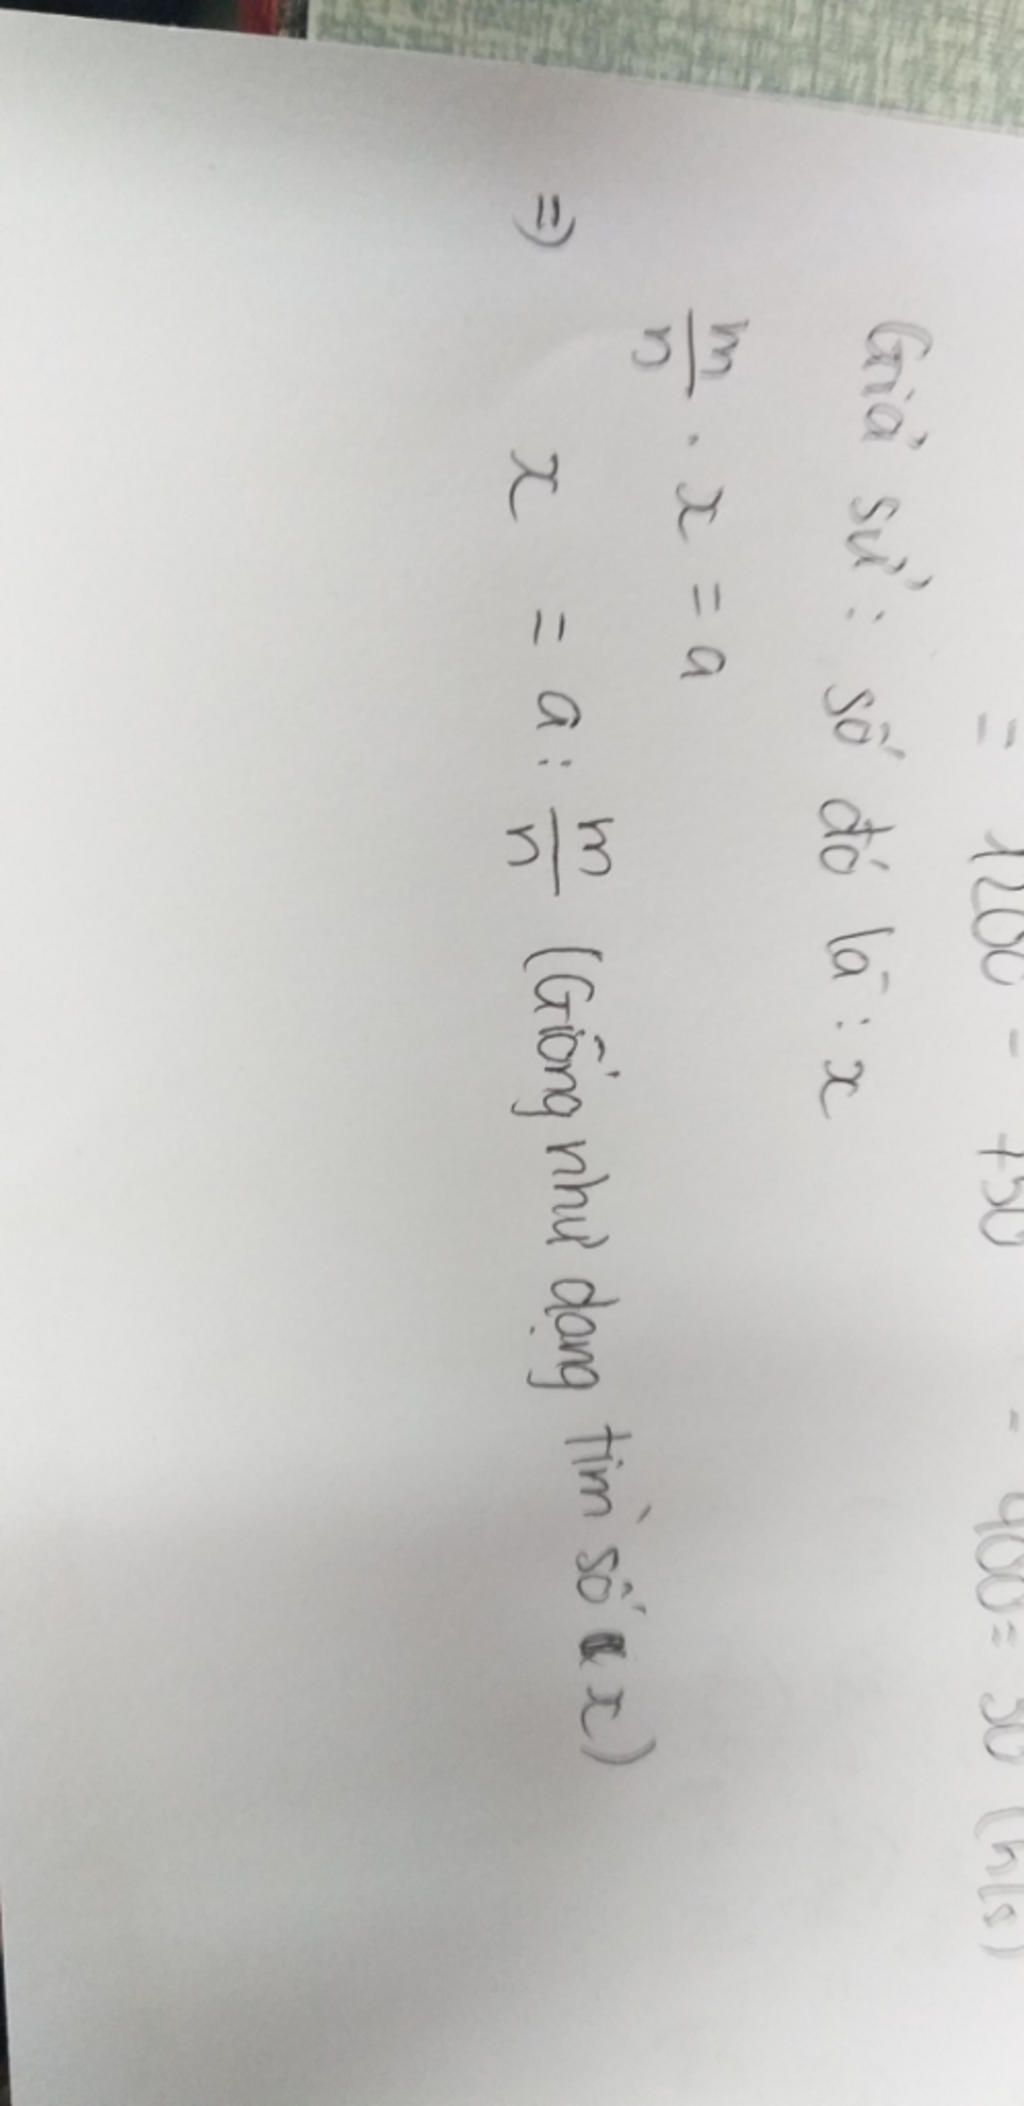 = 1200 - 750 - 400 = 50 (hls)
Giả sử: số đó là: x
m/n . x = a
=) x = a : m/n (Giống như dạng tìm số x)